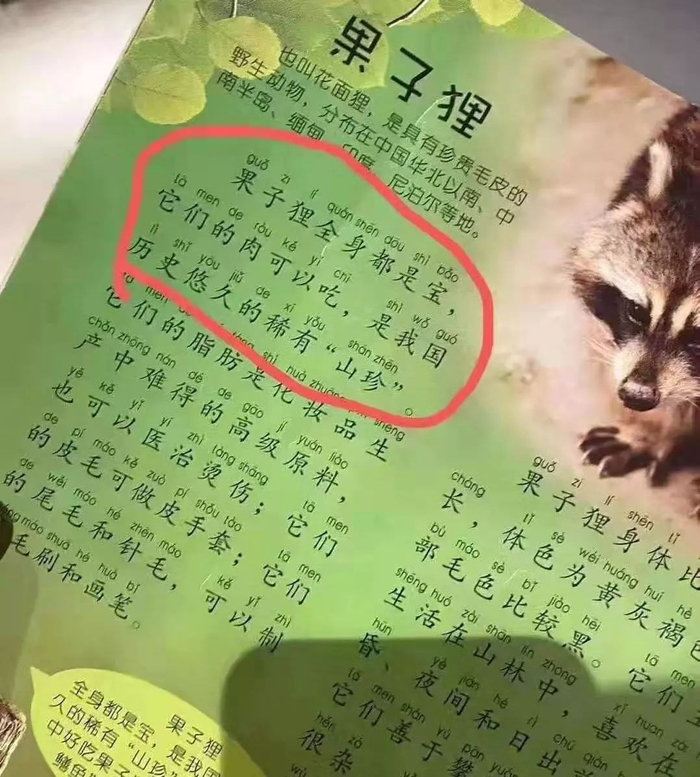 果子狸
也叫花面狸，是具有珍贵毛皮的
野生动物，分布在中国华北以南、中
南半岛、缅甸、印度、尼泊尔等地。
guǒ zi lí quán shēn dōu shì bǎo
果子狸全身都是宝，
tā men de ròu kě yǐ chī shì wǒ guó
它们的肉可以吃，是我国
lì shǐ yōu jiǔ de xī yǒu shān zhēn
历史悠久的稀有“山珍”。
它们的脂肪是化妆品生
chǎn zhōng nán dé de gāo jí yuán liào
产中难得的高级原料，
yě kě yǐ yī zhì tàng shāng tā men
也可以医治烫伤；它们
de pí máo kě zuò pí shǒu tào tā men
的皮毛可做皮手套；它们
de wěi máo hé zhēn máo kě yǐ zhì
的尾毛和针毛，可以制
máo shuā hé huà bǐ
毛刷和画笔。
guǒ zi lí shēn tǐ
果子狸身体比
cháng tǐ sè wéi huáng huī hè
长，体色为黄灰褐色
bù máo sè bǐ jiào hēi tā men
部毛色比较黑。它们
shēng huó zài shān lín zhōng xǐ huan zài
生活在山林中，喜欢在
hūn yè jiān hé rì chū qián
昏、夜间和日出前
tā men shàn yú pān yuán
它们善于攀
hěn zá
很杂
果子狸
全身都是宝，是我国
久的稀有“山珍”
中好吃果子